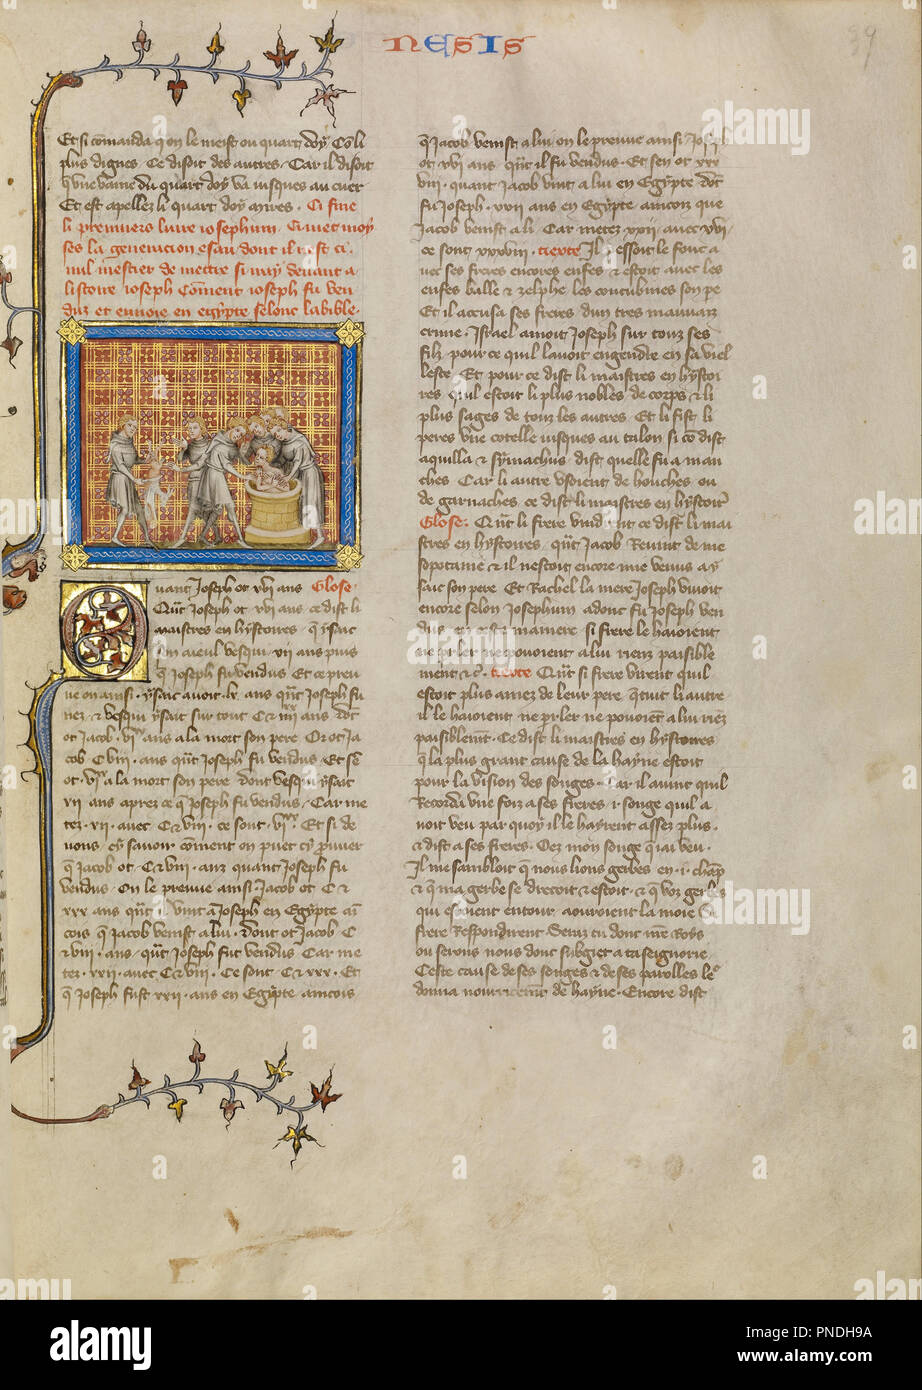 NESIS
39
Et si cōmanda q̄ on le meist ou quart doy Cō li
plus dignes. Ce disoit des autres. Car il disoit
q̄ vne vaine du quart doy va iusques au cuer
Et est apellez li quart doy mires. Ci fine
li premiers liure iosephum. Ci met moy
ses la generacion esau dont il nest ci
nul mestier de mettre si uay deuant a
listoire ioseph Cōment ioseph fu ven
duz et enuoie en egypte selonc la bible.
Quant Joseph ot xvi ans Glose.
Qūt Joseph ot xvi ans ce dist li
maistres en hystoires. q̄ ysaac
son aieul vesqui xii ans puis
q̄ Joseph fu vendus Et ce preu
ue on ainsi. ysaac auoit lx ans qūt Joseph fu
nez. & vesqui ysaac sur tout C& iiii ans dōt
ot Jacob. vi ans a la mort son pere Or ot Ja
cob C viii. ans qūt Joseph fu vendus. Et sēn
ot. vi a la mort son pere dont vesqui ysaac
xii ans aprez ce q̄ Joseph fu vendus. Car me
tez. xii. auec C& viii. ce sont. vi. Et si de
uons cy sauoir cōment on puet cy prouuer
q̄ Jacob ot. C& viii. anz quant Joseph fu
vendus. On le preuue ainsi Jacob ot C &
xxx ans qūt il vint a Joseph en Egypte ain
cois q̄ Jacob venist a lui. dont ot Jacob C
& viii ans. qūt Joseph fut vendus Car me
tez. xxii. auec C& viii. Ce sont C& xxx. Et
q̄ Joseph fust xxii. ans en Egypte aincois
q̄ Jacob venist a lui on le preuue ainsi Joseph
ot xvi ans qūt il fu vendus. Et sen ot xxx
viii. quant Jacob vint a lui en Egypte dōt
fu Joseph. xxii ans en Egypte aincoiz que
Jacob venist a li. Car metez xxii. auec xvi.
ce sont xxxviii. texte Il paissoit le fouc a
uec ses freres encores enfes & estoit auec les
enfes balle & zelphe les concubines son pe
Et il accusa ses freres dun tres mauuaiz
crime. Israel amoit Joseph sur touz ses
filz. pour ce quil lauoit engendre en sa viel
lesce. Et pour ce dist li maistres en hystoi
res quil estoit li plus nobles de corps & li
plus sages de touz les autres. Et li fist li
peres vne cotelle iusques au talon si cō dist
aquilla & symachus. dist quelle fu a man
ches Car li autre vsoient de houches ou
de garnaches ce dist li maistres en hystoir
Glose. Qūt li frere vindrent ce dist li mai
stres en hystoires. qūt Jacob Reuint de me
sopotame & il nestoit encore mie venus a ys
saac son pere Et Rachel la mere Joseph viuoit
encore selon Josephum adonc fu Joseph ven
dus en ceste maniere si frere le haioient
ne p̄ler ne pouoient a lui riens paisible
ment &c̄. texte Qūt si frere virent quil
estoit plus amez de leur pere q̄ tuit li autre.
il le haioient ne p̄ler ne pouoiēt a lui riēz
paisiblemt. Ce dist li maistres en hystoires
q̄ la plus grant cause de la hayne estoit
pour la vision des songes. Car il auint quil
Recorda vne foiz a ses freres .i. songe quil a
uoit veu par quoy il le hayrent assez plus.
& dist a ses freres. Oez mon songe q̄ iai veu.
Il me sambloit q̄ nous lions gerbes en .i. chāp
& q̄ ma gerbe se drecoit & estoit. & q̄ voz gerbes
qui estoient entour aouroient la moie Si
frere Respondirent Seraz tu donc nr̄e Roys
ou serons nous donc subget a ta seignorie
Ceste cause de ses songes & de ses parolles le
donna nourricemt de hayne. Encore dist
alamy
alamy
Image ID: PNDH9A
www.alamy.com